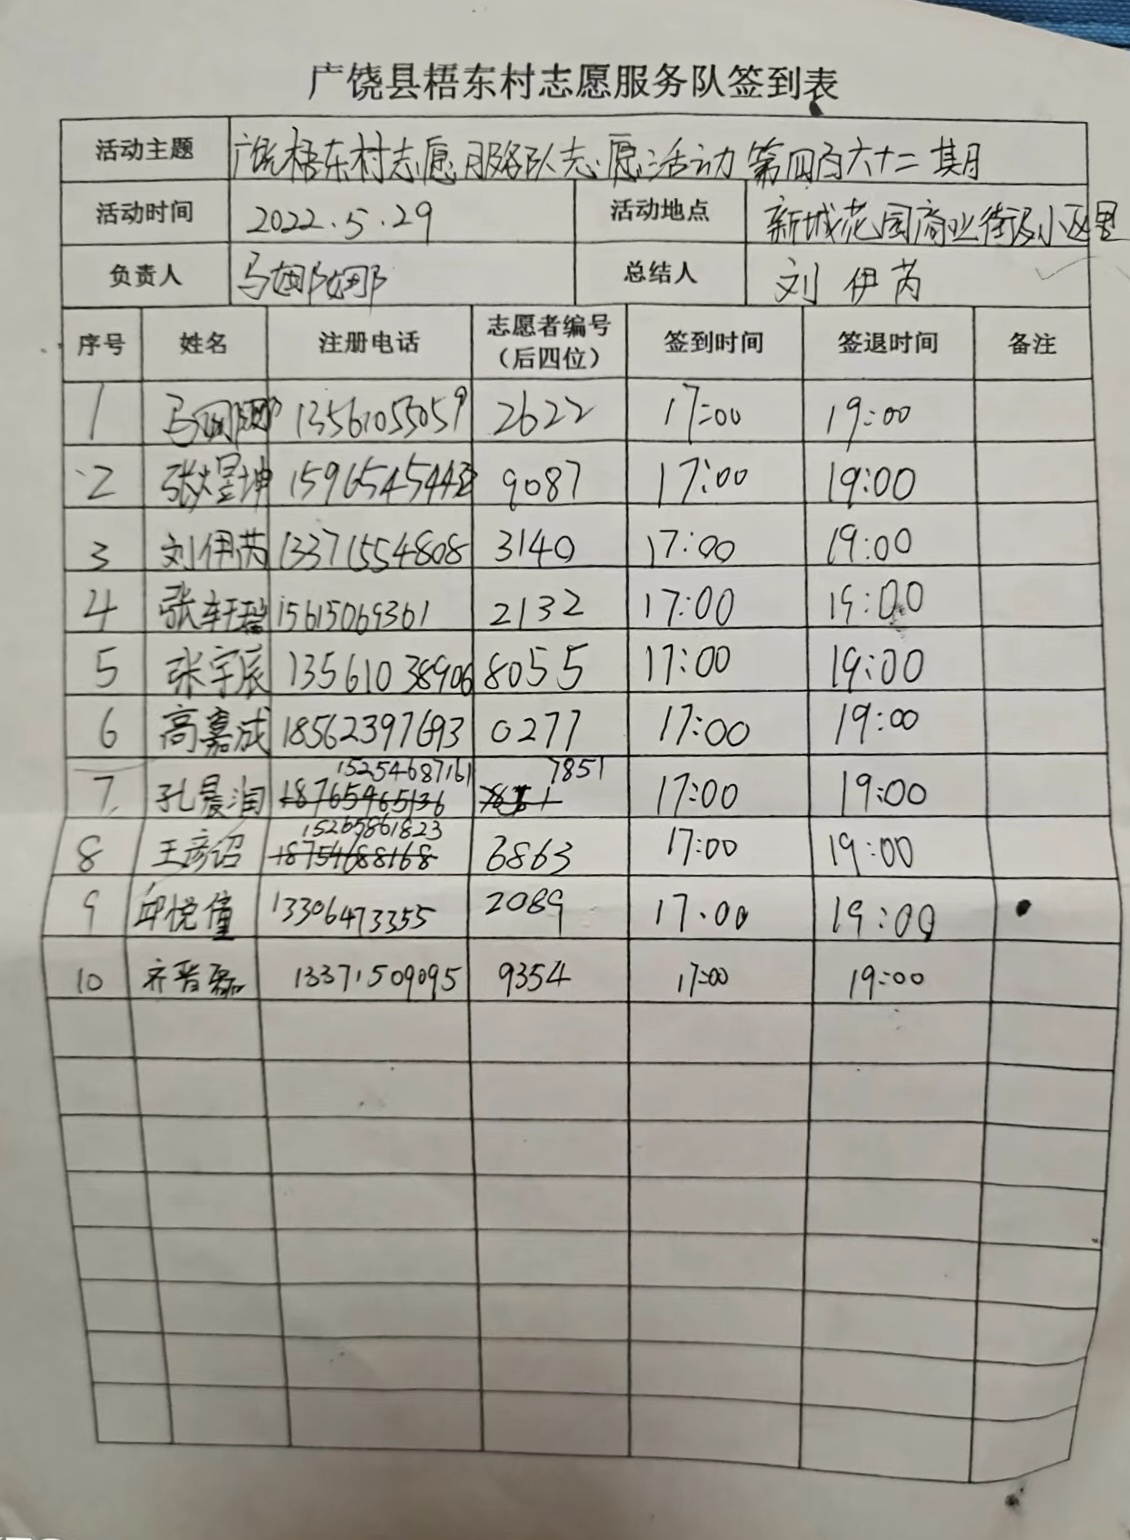 广饶县梧东村志愿服务队签到表
活动主题 广饶梧东村志愿服务队志愿活动第四百六十二期
活动时间 2022.5.29 活动地点 新城花园商业街及小区里
负责人 马娜娜 总结人 刘伊芮
序号 姓名 注册电话 志愿者编号（后四位） 签到时间 签退时间 备注
1 马娜娜 13561055059 2622 17:00 19:00
2 张煜坤 1596545442 9087 17:00 19:00
3 刘伊芮 13371554808 3140 17:00 19:00
4 张轩瑞 15615069361 2132 17:00 19:00
5 张宇辰 13561038906 8055 17:00 19:00
6 高嘉成 18562397693 0277 17:00 19:00
15254687161 7851
7 孔晨润 18765465136 17:00 19:00
15265861823
8 王彦诏 18754688168 6863 17:00 19:00
9 邱悦僮 13306473355 2089 17.00 19:00
10 齐晋磊 13371509095 9354 17:00 19:00